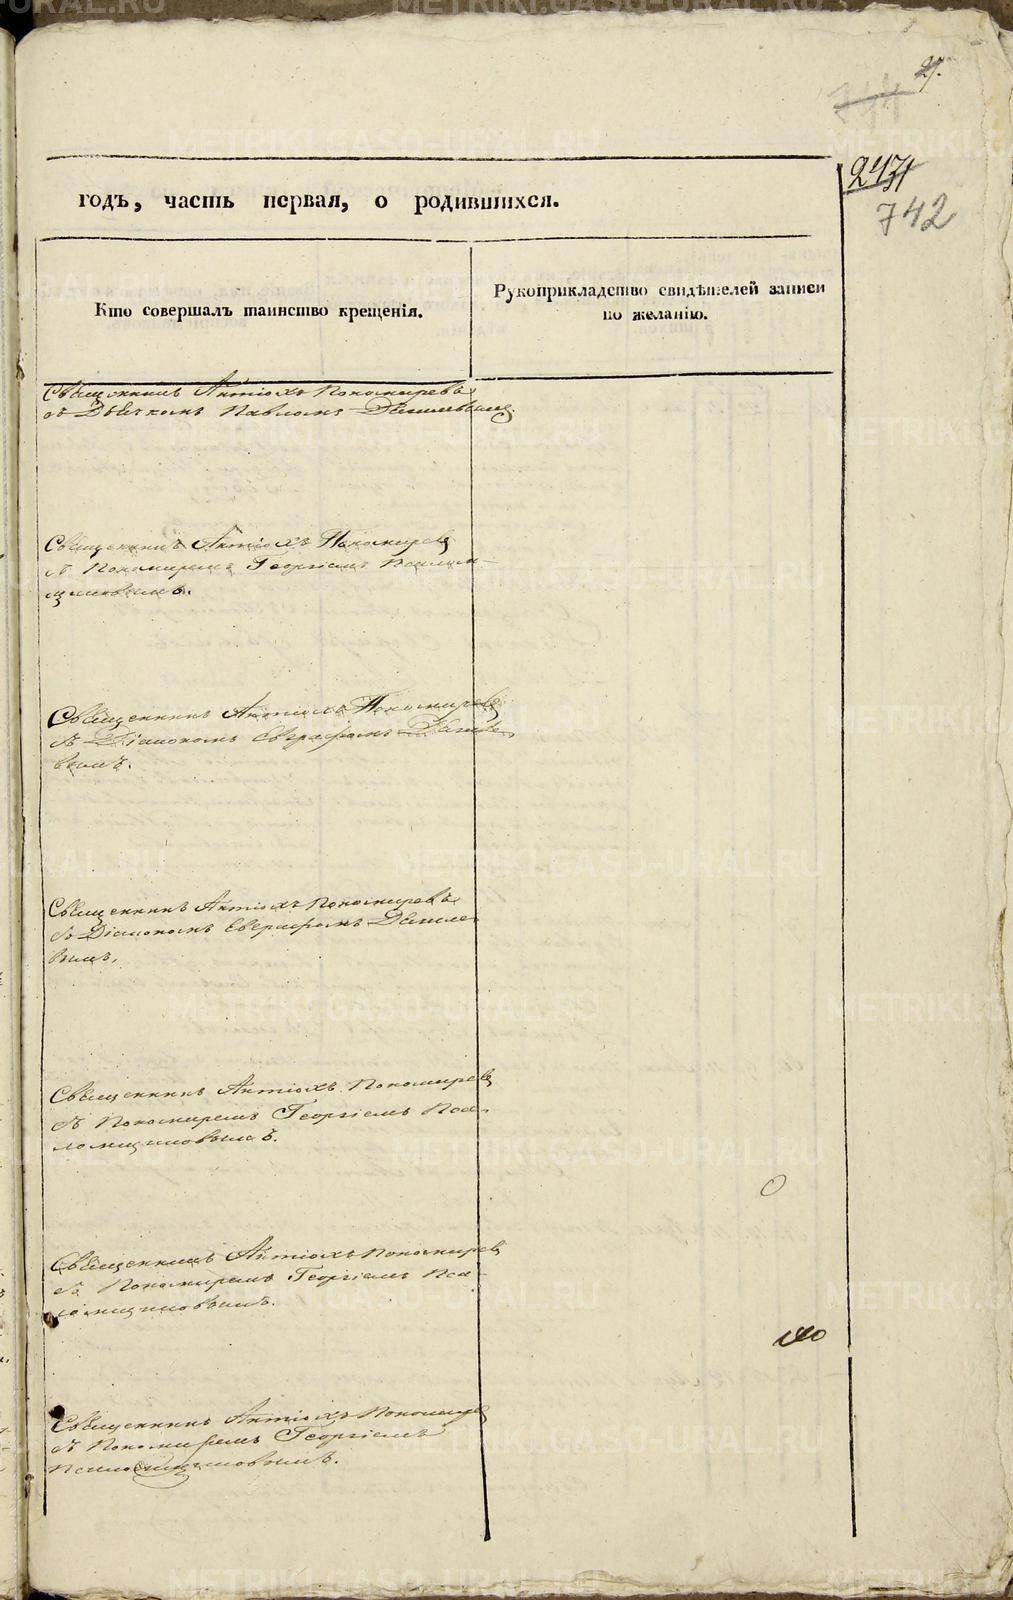 27.
744
2471
742
годъ, часть первая, о родившихся.
Кто совершалъ таинство крещенія.
Рукоприкладство свидѣтелей записи
по желанію.
Священникъ Антіохъ Пономаревъ
съ Дьячкомъ Павломъ
Священникъ Антіохъ Пономаревъ
съ Пономаремъ Георгіемъ Псалом-
щиковымъ.
Священникъ Антіохъ Пономаревъ
съ Діакономъ Евграфомъ
вымъ.
Священникъ Антіохъ Пономаревъ
съ Діакономъ Евграфомъ
вымъ.
Священникъ Антіохъ Пономаревъ
съ Пономаремъ Георгіемъ Пса-
ломщиковымъ.
Священникъ Антіохъ Пономаревъ
съ Пономаремъ Георгіемъ Пса-
ломщиковымъ.
Священникъ Антіохъ Пономаревъ
съ Пономаремъ Георгіемъ
Псаломщиковымъ.
METRIKI.GASO-URAL.RU